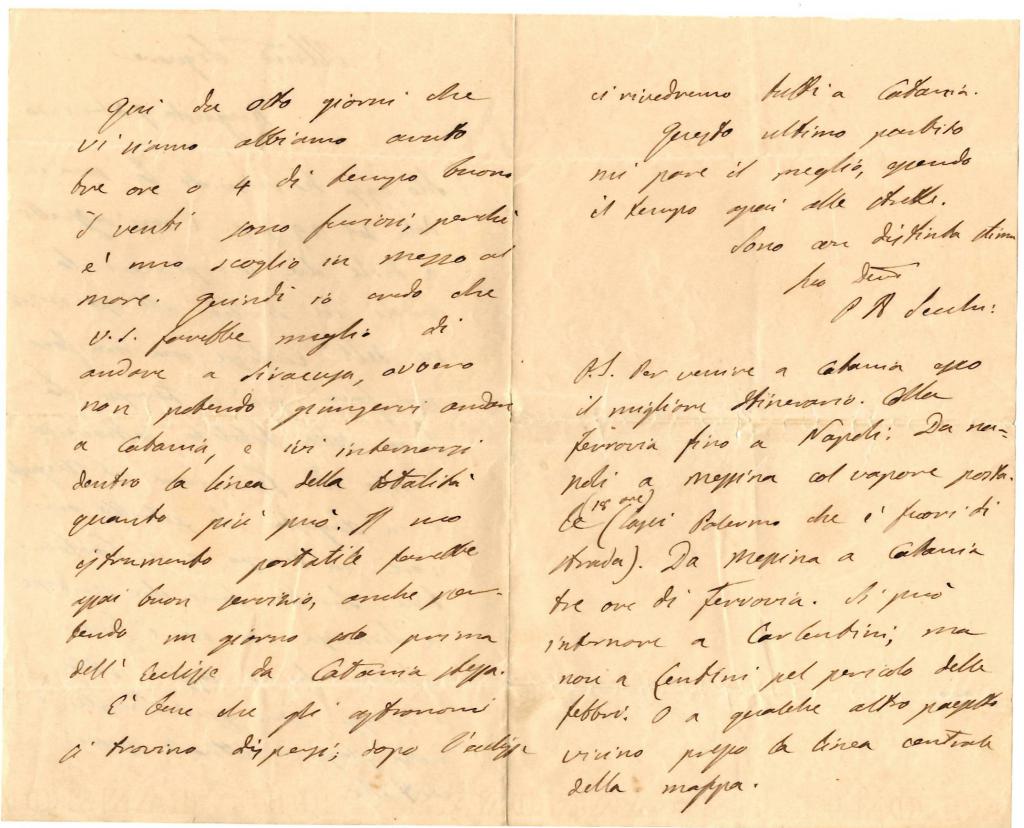 Qui da otto giorni che
vi siamo abbiamo avuto
tre ore o 4 di tempo buono
I venti sono furiosi, perchè
è uno scoglio in mezzo al
mare. Quindi io credo che
V.S. farebbe meglio di
andare a Siracusa, ovvero
non potendo giungervi andar
a Catania, e ivi internarsi
dentro la linea della totalità
quanto più può. Il suo
istrumento portatile farebbe
assai buon servizio, anche par-
tendo un giorno solo prima
dell' Eclisse da Catania stessa.
È bene che gli astronomi
si trovino dispersi; dopo l'eclisse
ci rivedremo tutti a Catania.
Questo ultimo partito
mi pare il meglio, essendo
il tempo assai alle strette.
Sono con distinta stima
suo
P A Secchi
P.S. Per venire a Catania ecco
il migliore Itinerario. Colla
ferrovia fino a Napoli: Da Na=
poli a Messina col vapore posta-
le (18 ore) (lasci Palermo che è fuori di
strada). Da Messina a Catania
tre ore di ferrovia. Si può
internare a Carlentini, ma
non a Lentini pel pericolo delle
febbri. O a qualche altro paesetto
vicino presso la linea centrale
della mappa.